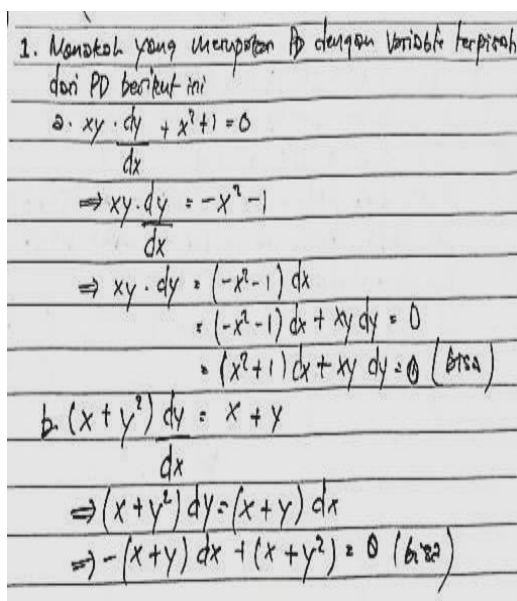 1. Manakah yang merupakan PD dengan Variable terpisah
dari PD berikut ini
a. xy . dy/dx + x² + 1 = 0
⇒ xy . dy/dx = -x² - 1
⇒ xy . dy = (-x² - 1) dx
= (-x² - 1) dx + xy dy = 0
= (x² + 1) dx + xy dy = 0 (bisa)
b. (x + y²) dy/dx = x + y
⇒ (x + y²) dy = (x + y) dx
⇒ -(x + y) dx + (x + y²) = 0 (bisa)